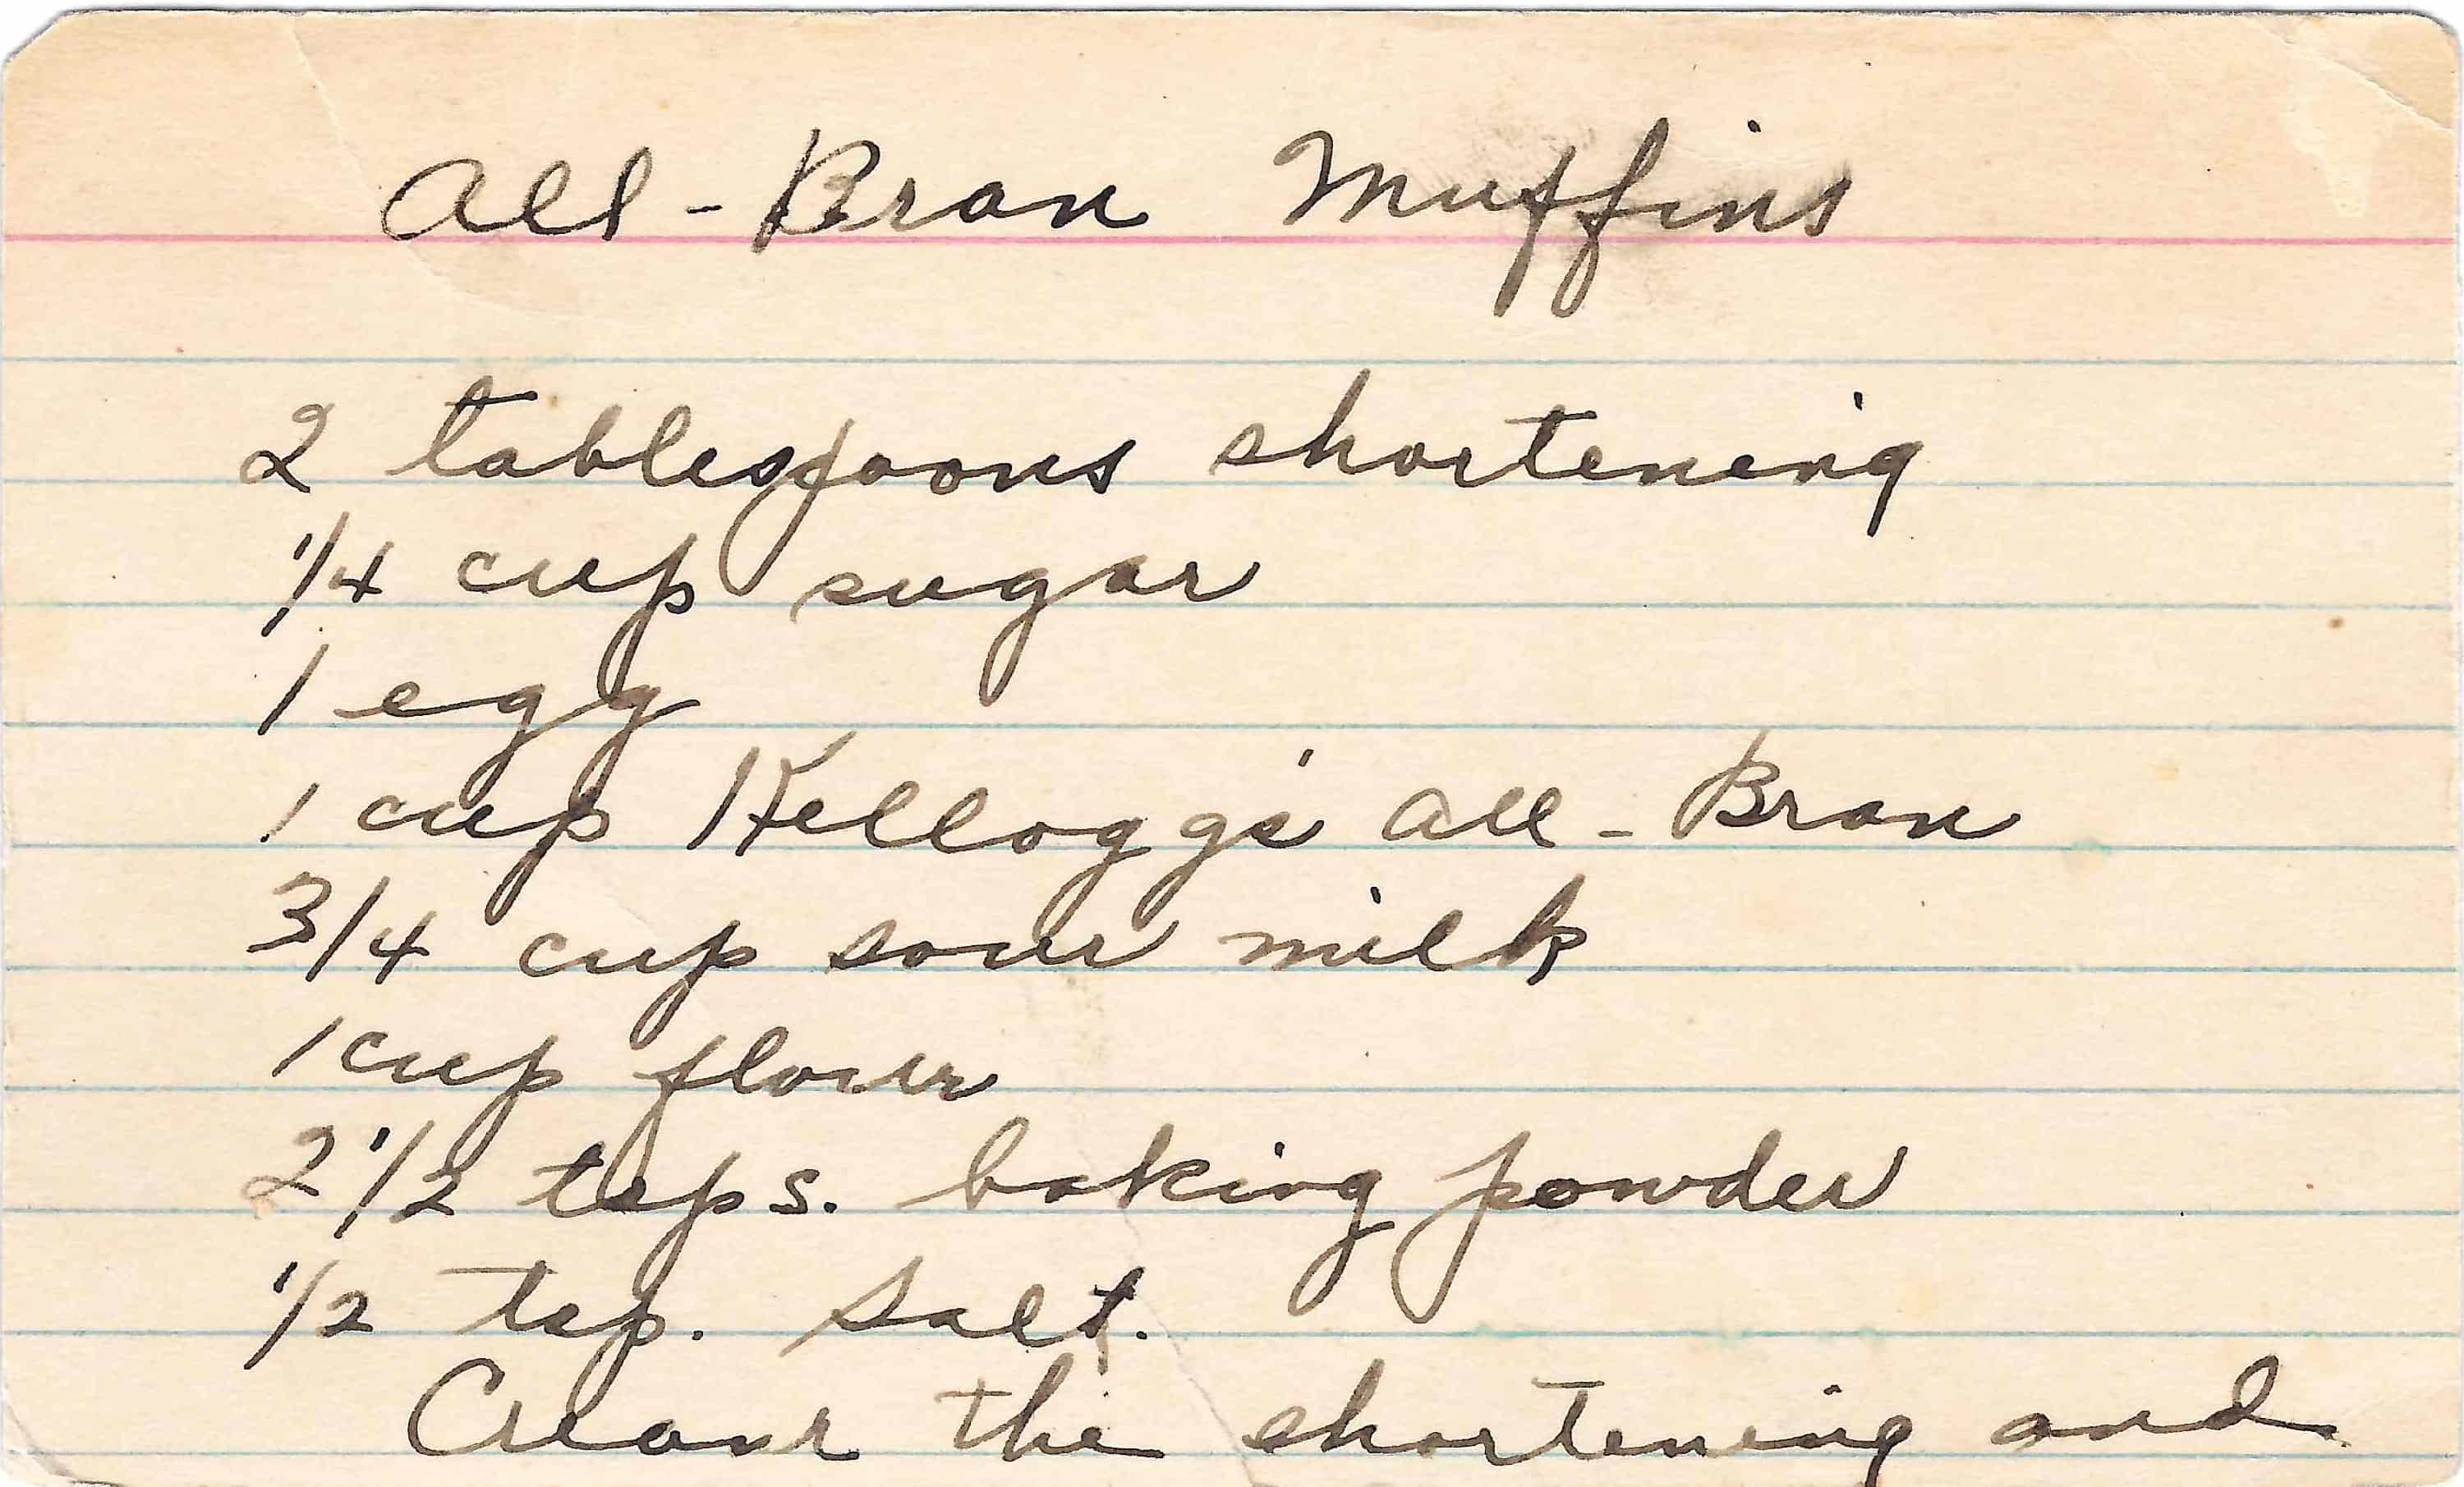 All-Bran Muffins
2 tablespoons shortening
1/4 cup sugar
1 egg
1 cup Kellogg's All-Bran
3/4 cup sour milk
1 cup flour
2 1/2 tsps. baking powder
1/2 tsp. salt.
Cream the shortening and